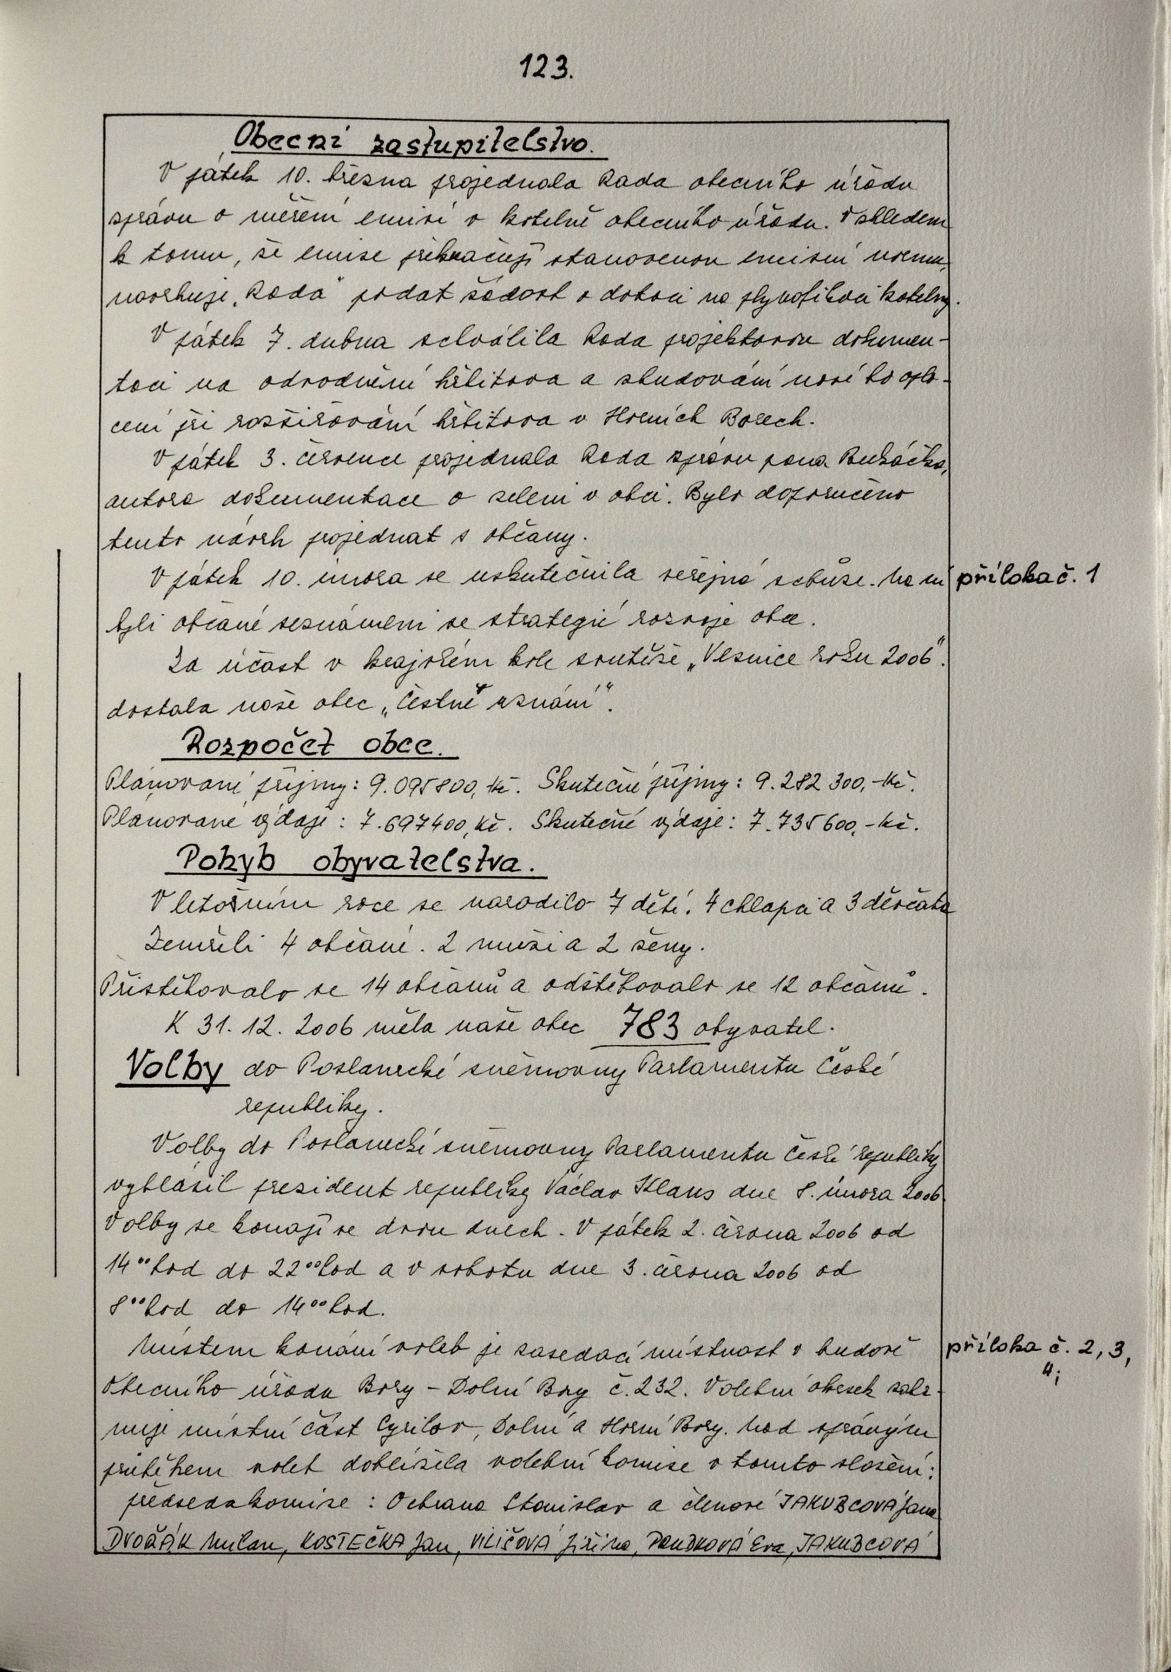 123.
Obecní zastupitelstvo.
V pátek 10. března projednala Rada obecního úřadu
zprávu o měření emisí v kotelně obecního úřadu. Vzhledem
k tomu, že emise překračují stanovenou emisní normu,
navrhuje „Rada" podat žádost o dotaci na plynofikaci kotelny.
V pátek 7. dubna schválila Rada projektovou dokumen-
taci na odvodnění hřbitova a zbudování nového oplo-
cení při rozšiřování hřbitova v Horních Borech.
V pátek 3. července projednala Rada zprávu pana
autora dokumentace o zeleni v obci. Bylo doporučeno
tento návrh projednat s občany.
V pátek 10. února se uskutečnila veřejná schůze. Na ní
příloha č. 1
byli občané seznámeni se strategií rozvoje obce.
Za účast v krajském kole soutěže „Vesnice roku 2006".
dostala naše obec „Čestné uznání".
Rozpočet obce.
Plánované příjmy: 9.095800,Kč. Skutečné příjmy: 9.282 300,-Kč.
Plánované výdaje: 7.697400,Kč. Skutečné výdaje: 7.735600,-Kč.
Pohyb obyvatelstva.
V letošním roce se narodilo 7 dětí. 4 chlapci a 3 děvčata
Zemřeli 4 občané. 2 muži a 2 ženy.
Přistěhovalo se 14 občanů a odstěhovalo se 12 občanů.
K 31. 12. 2006 měla naše obec 783 obyvatel.
Volby do Poslanecké sněmovny Parlamentu České
republiky.
Volby do Poslanecké sněmovny Parlamentu České republiky
vyhlásil prezident republiky Václav Klaus dne 8. února 2006
Volby se konají ve dvou dnech. V pátek 2. června 2006 od
14⁰⁰hod do 22⁰⁰hod a v sobotu dne 3. června 2006 od
8⁰⁰hod do 14⁰⁰hod.
Místem konání voleb je zasedací místnost v budově
příloha č. 2, 3,
4;
Obecního úřadu Bory - Dolní Bory č. 232. Volební okrsek zahr-
nuje místní část Cyrilov, Dolní a Horní Bory. Nad správným
průběhem voleb dohlížela volební komise v tomto složení:
předseda komise: Ochrana Stanislav a členové JAKUBCOVÁ Jana
DVOŘÁK Milan, KOSTEČKA Jan, VILIČOVÁ Jiřina, Eva, JAKUBCOVÁ